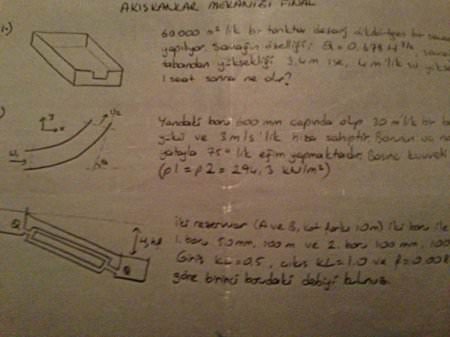 AKIŞKANLAR MEKANİĞİ FİNAL
1-) 60.000 m² lik bir tanktan deşarj dikdörtgen bir savak
yapılıyor. Savağın özelliği: Q = 0,678 H^3/2, savak
tabandan yüksekliği 3,4 m ise, 4 m lik su yüksek
1 saat sonra ne olur?
Yandaki boru 600 mm çapında olup 30 m lik bir
yükü ve 3 m/s lik hıza sahiptir. Borunun uç
yatayla 75° lik eğim yapmaktadır. Basınç kuvveti
(p1 = p2 = 294,3 kN/m²)
İki rezervuar (A ve B, kot farkı 10 m) iki boru ile
1. boru 50 mm, 100 m ve 2. boru 100 mm, 100
Giriş kL = 0.5, çıkış kL = 1.0 ve f = 0.008
göre birinci borudaki debiyi bulunuz.